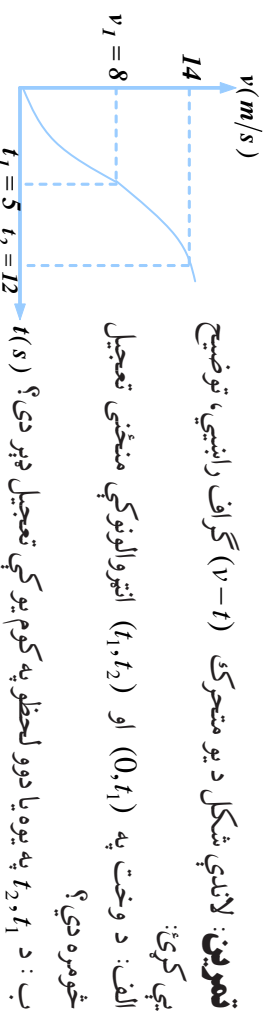 تمرين: لاندې شکل د يو متحرک (v − t) گراف راښيي، توضيح
يې کړئ:
الف: د وخت په (0, t₁) او (t₁, t₂) انټروالونوکې منځنى تعجيل
څومره دي؟
ب: د t₂, t₁ په يوه يا دوو لحظو په کوم يو کې تعجيل ډېر دى؟
v(m/s)
14
v₁ = 8
t₁ = 5 t₂ = 12 t(s)